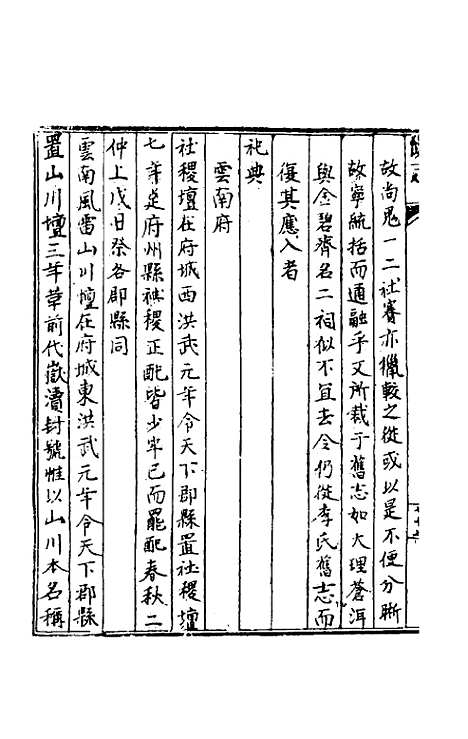 故尚鬼一二社賽亦獵較之從或以是不便分晰
故寧統括而通融乎又所裁于舊志如大理蒼洱
與金碧齊名二祠似不宜去令仍從李氏舊志而
復其應入者
祀典
雲南府
社稷壇在府城西洪武元年令天下郡縣置社稷壇
七年定府州縣社稷正配皆少牢已而罷配春秋二
仲上戊日祭各郡縣同
雲南風雷山川壇在府城東洪武元年令天下郡縣
置山川壇三年革前代嶽瀆封號惟以山川本名稱